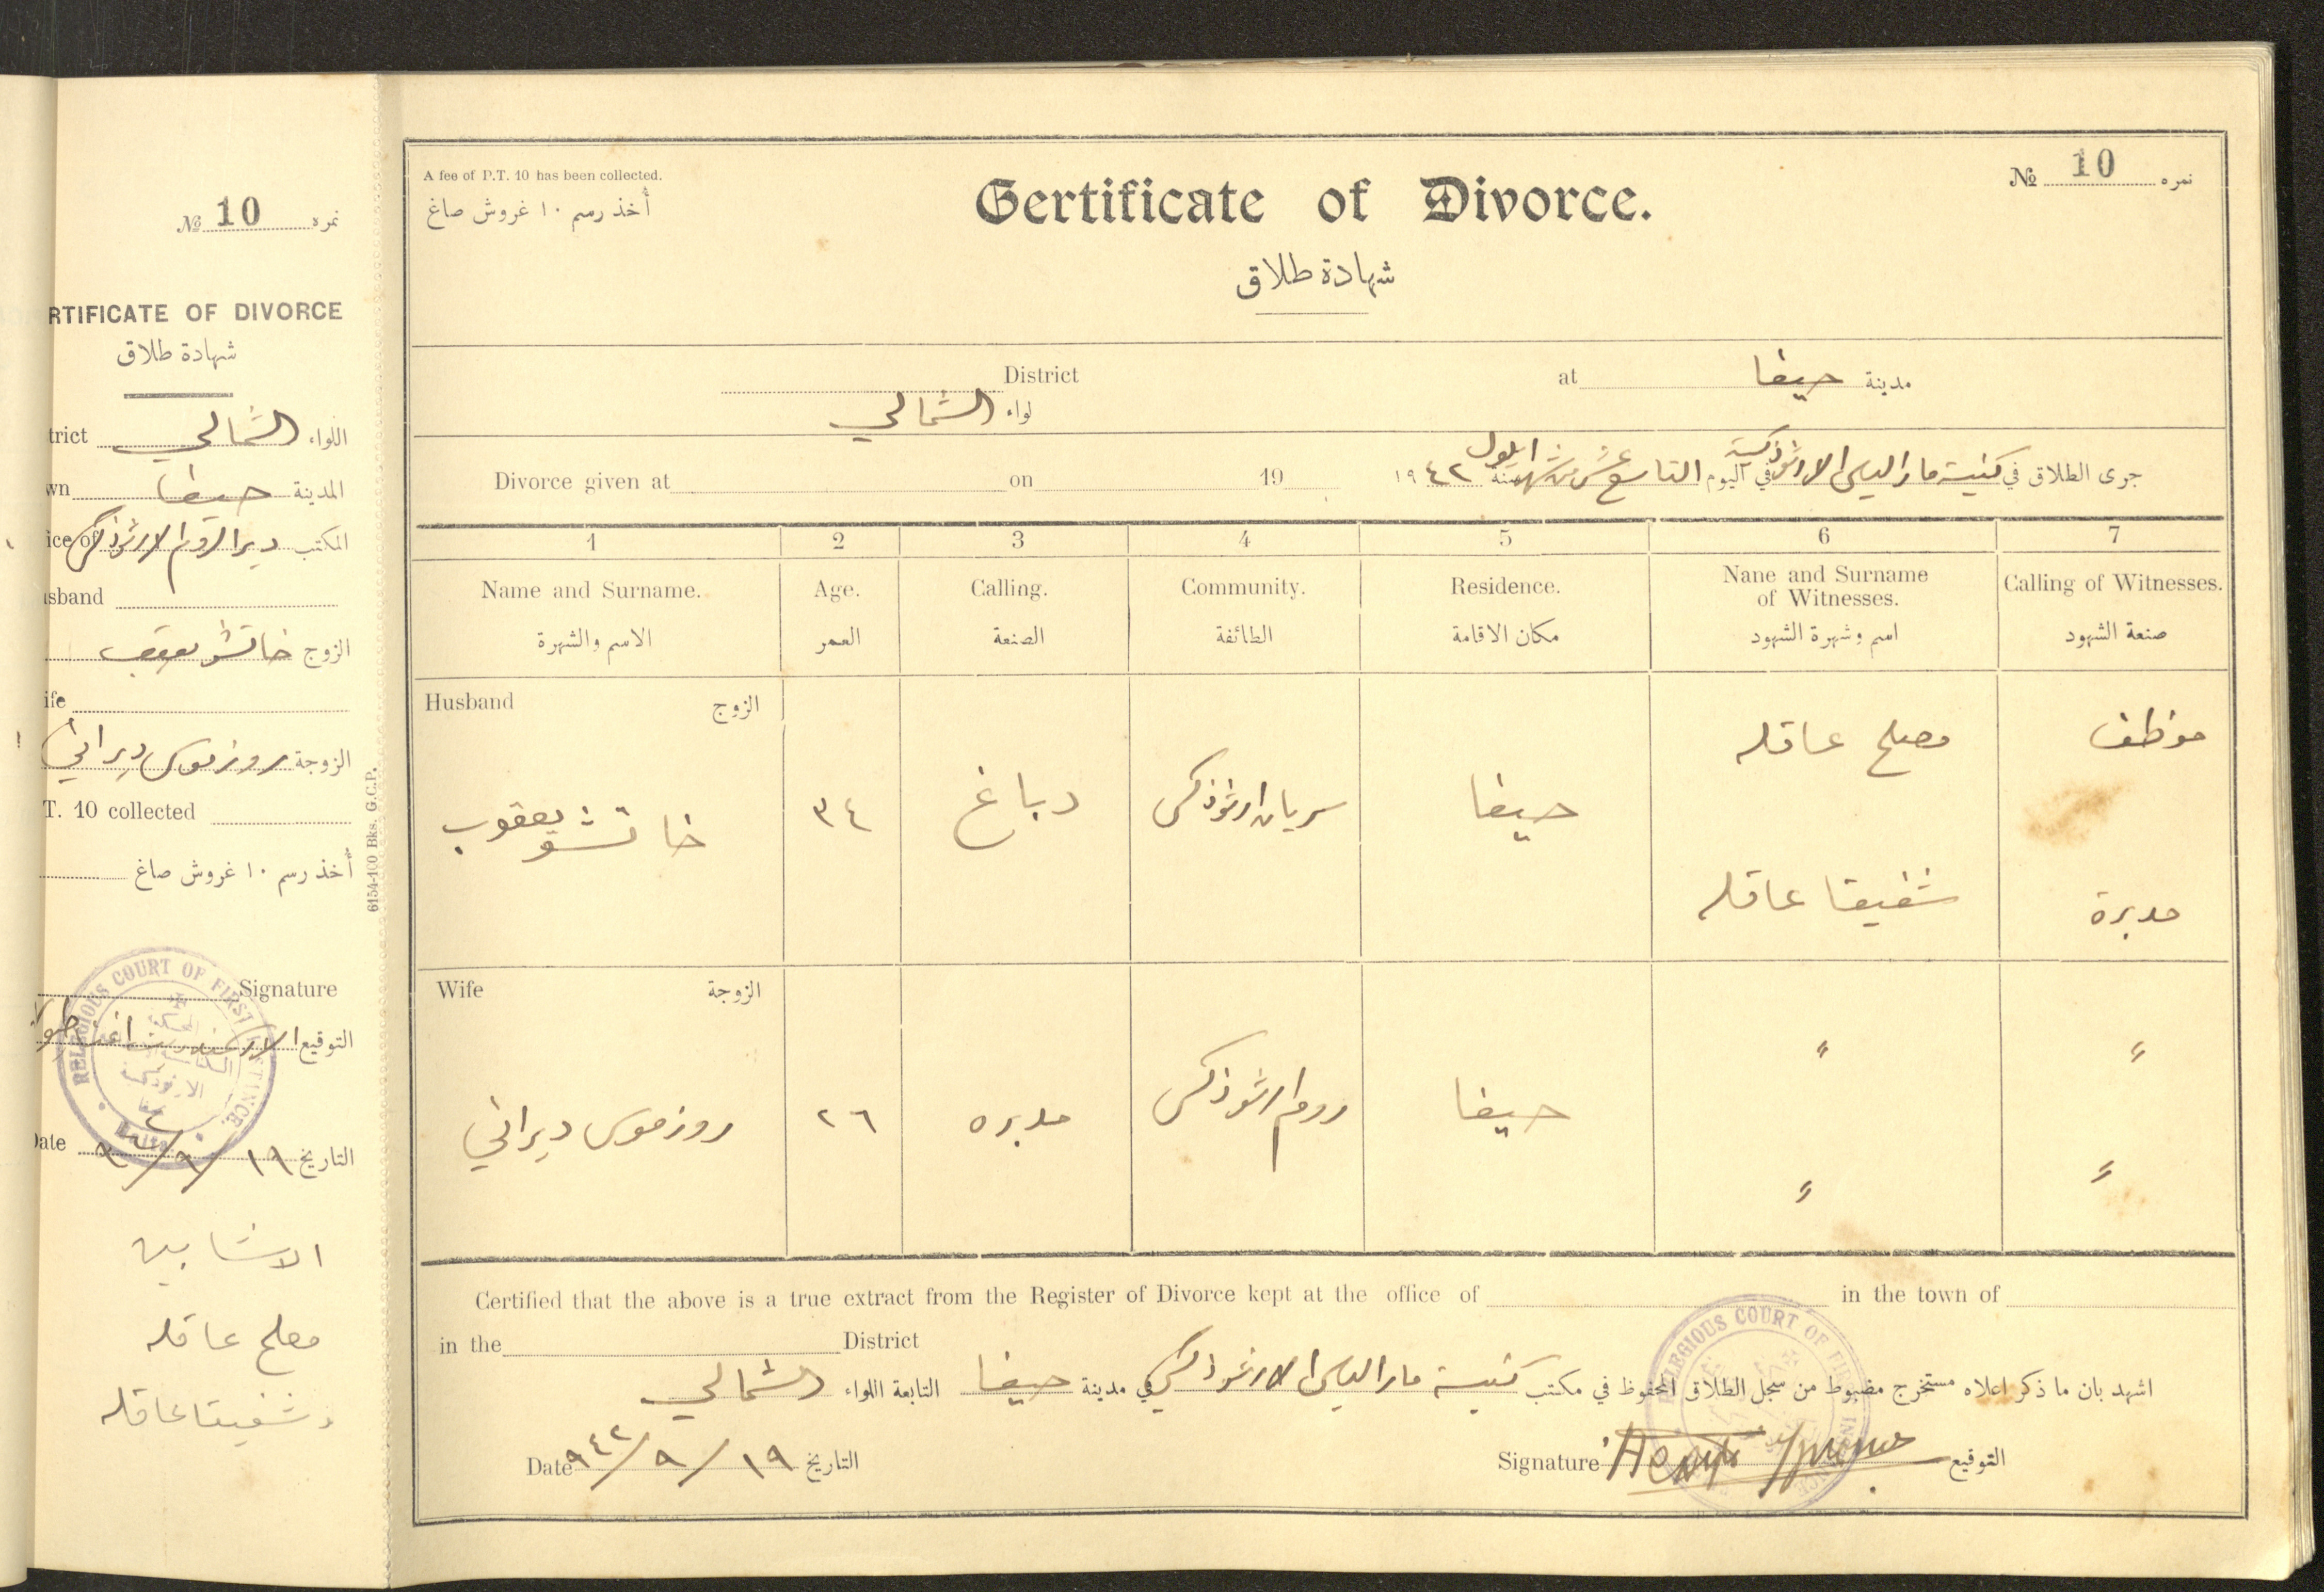 № 10 نمره
RTIFICATE OF DIVORCE
شهادة طلاق
trict الشمالي اللواء
wn حيفا المدينة
ice of دير الروم الارثوذكس المكتب
sband
الزوج خاتشو يعقوب
ife
الزوجة روز موسى ديراني
T. 10 collected
أخذ رسم ١٠ غروش صاغ
Signature
التوقيع
RELEGIOUS COURT OF FIRST INSTINCE
Haifa
Date ١٩/٩/٩٤٢ التاريخ
الاشابين
مصلح عاقله
وشفيقا عاقله
6154-100 Bks. G.C.P.
A fee of P.T. 10 has been collected.
أخذ رسم ١٠ غروش صاغ
Certificate of Divorce.
شهادة طلاق
№ 10 نمره
District
لواء الشمالي
at حيفا مدينة
Divorce given at on 19
جرى الطلاق في كنيسة مار الياس الارثوذكسية في اليوم التاسع عشر من شهر ايلول سنة ١٩٤٢
1 2 3 4 5 6 7
Name and Surname. Age. Calling. Community. Residence. Nane and Surname of Witnesses. Calling of Witnesses.
الاسم والشهرة العمر الصنعة الطائفة مكان الاقامة اسم وشهرة الشهود صنعة الشهود
Husband الزوج
خاتشو يعقوب ٣٤ دباغ سريان ارثوذكس حيفا مصلح عاقله موظف
شفيقا عاقله مدبرة
Wife الزوجة
روز موسى ديراني ٢٦ مدبره روم ارثوذكس حيفا " "
" "
Certified that the above is a true extract from the Register of Divorce kept at the office of in the town of
in the District
اشهد بان ما ذكر اعلاه مستخرج مضبوط من سجل الطلاق المحفوظ في مكتب كنيسة مار الياس الارثوذكسي في مدينة حيفا التابعة اللواء الشمالي
Date ١٩/٩/٩٤٢ التاريخ
Signature التوقيع
RELEGIOUS COURT OF FIRST INSTINCE